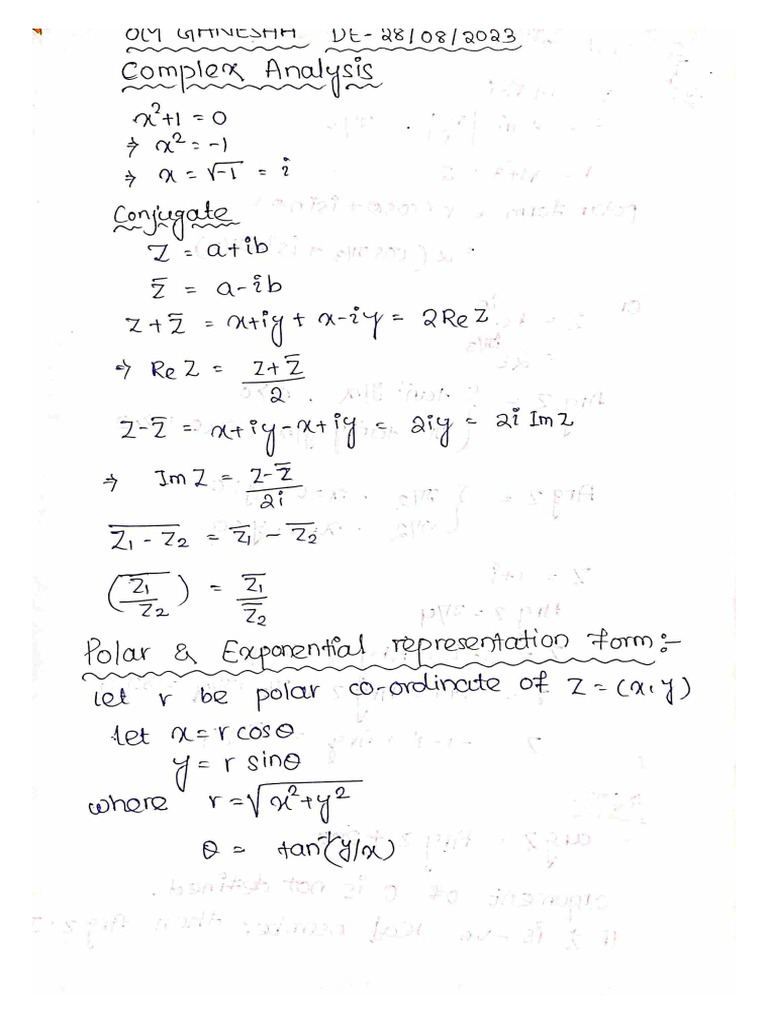 OM GANESHA DT-28/08/2023
Complex Analysis
x²+1 = 0
⇒ x² = -1
⇒ x = √-1 = i
Conjugate
Z = a+ib
z̄ = a-ib
Z+Z̄ = x+iy + x-iy = 2Re Z
⇒ Re Z = (Z+Z̄)/2.
Z-Z̄ = x+iy-x+iy = 2iy = 2i Im Z
⇒ Im Z = (Z-Z̄)/2i
\overline{Z₁ - Z₂} = Z̄₁ - Z̄₂
\overline{(Z₁/Z₂)} = Z̄₁/Z̄₂
Polar & Exponential representation form:-
Let r be polar co-ordinate of Z = (x, y)
let x = r cosθ
y = r sinθ
where r = √(x²+y²)
θ = tan⁻¹(y/x)